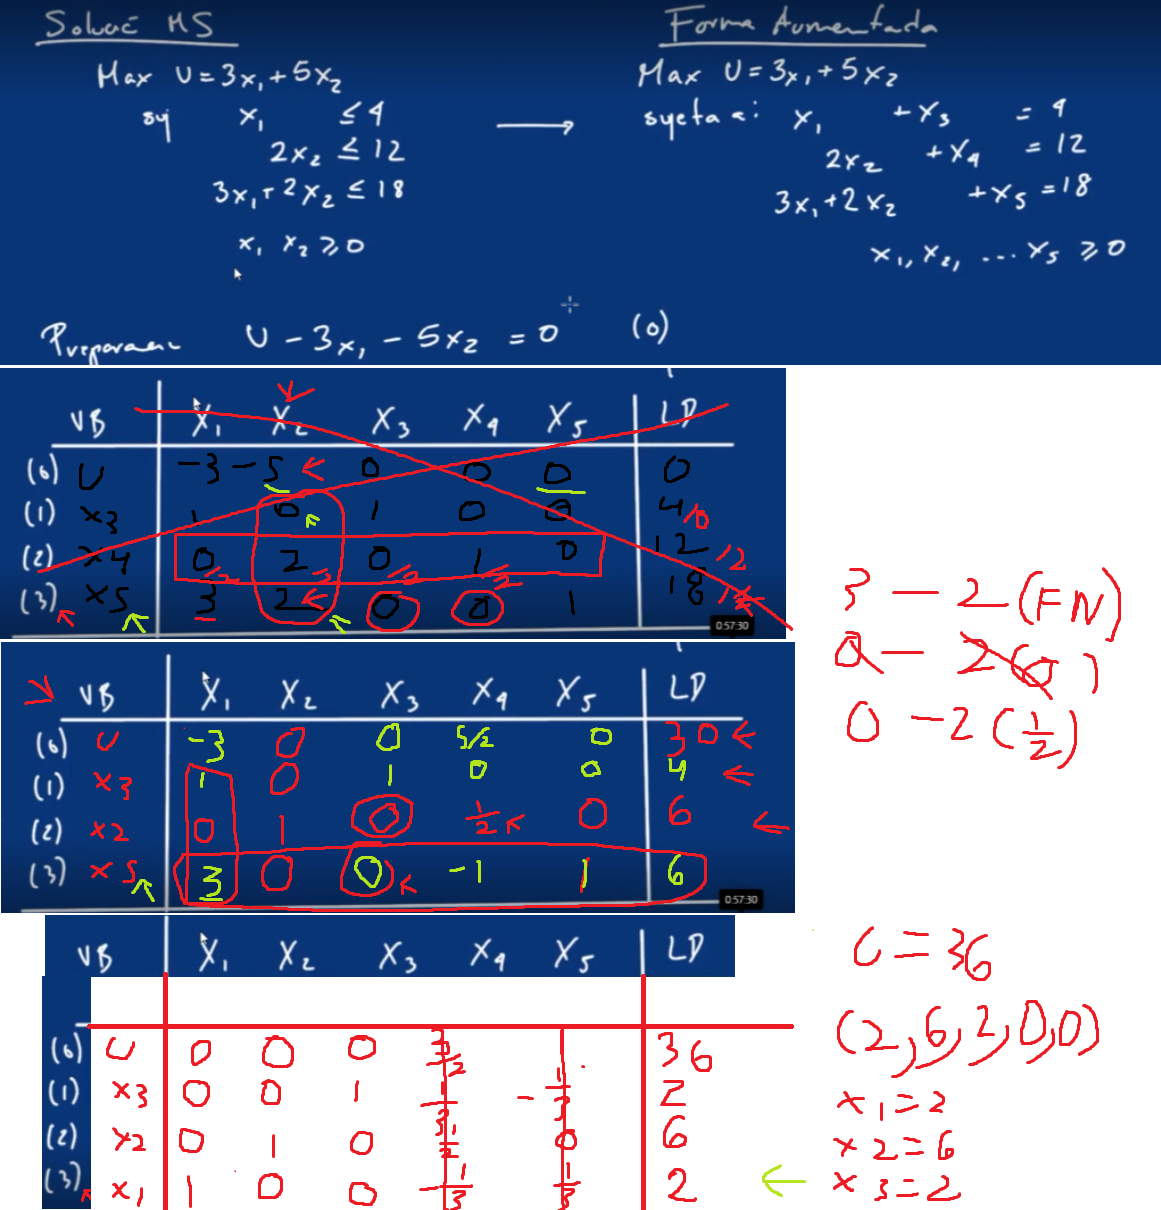 Soluc MS
Max U = 3x₁ + 5x₂
sy x₁ ≤ 4
2x₂ ≤ 12
3x₁ + 2x₂ ≤ 18
x₁ x₂ ≥ 0
Forma Aumentada
Max U = 3x₁ + 5x₂
syeta a: x₁ + x₃ = 4
2x₂ + x₄ = 12
3x₁ + 2x₂ + x₅ = 18
x₁, x₂, ... x₅ ≥ 0
U - 3x₁ - 5x₂ = 0 (0)
VB X₁ X₂ X₃ X₄ X₅ LD
(0) U -3 -5 0 0 0 0
(1) X3 1 0 1 0 0 4 /0
(2) X4 0 2 0 1 0 12 /2
(3) X5 3 2 0 0 1 18
0:57:30
VB X₁ X₂ X₃ X₄ X₅ LD
(0) U -3 0 0 5/2 0 30
(1) X3 1 0 1 0 0 4
(2) X2 0 1 0 1/2 0 6
(3) X5 3 0 0 -1 1 6
0:57:30
3 - 2 (FN)
0 - 2 (0)
0 - 2 (1/2)
VB X₁ X₂ X₃ X₄ X₅ LD
(0) U 0 0 0 3/2 1 36
(1) X3 0 0 1 1/3 -1/3 2
(2) X2 0 1 0 1/2 0 6
(3) X1 1 0 0 -1/3 1/3 2
U = 36
(2, 6, 2, 0, 0)
x1 = 2
x2 = 6
x3 = 2